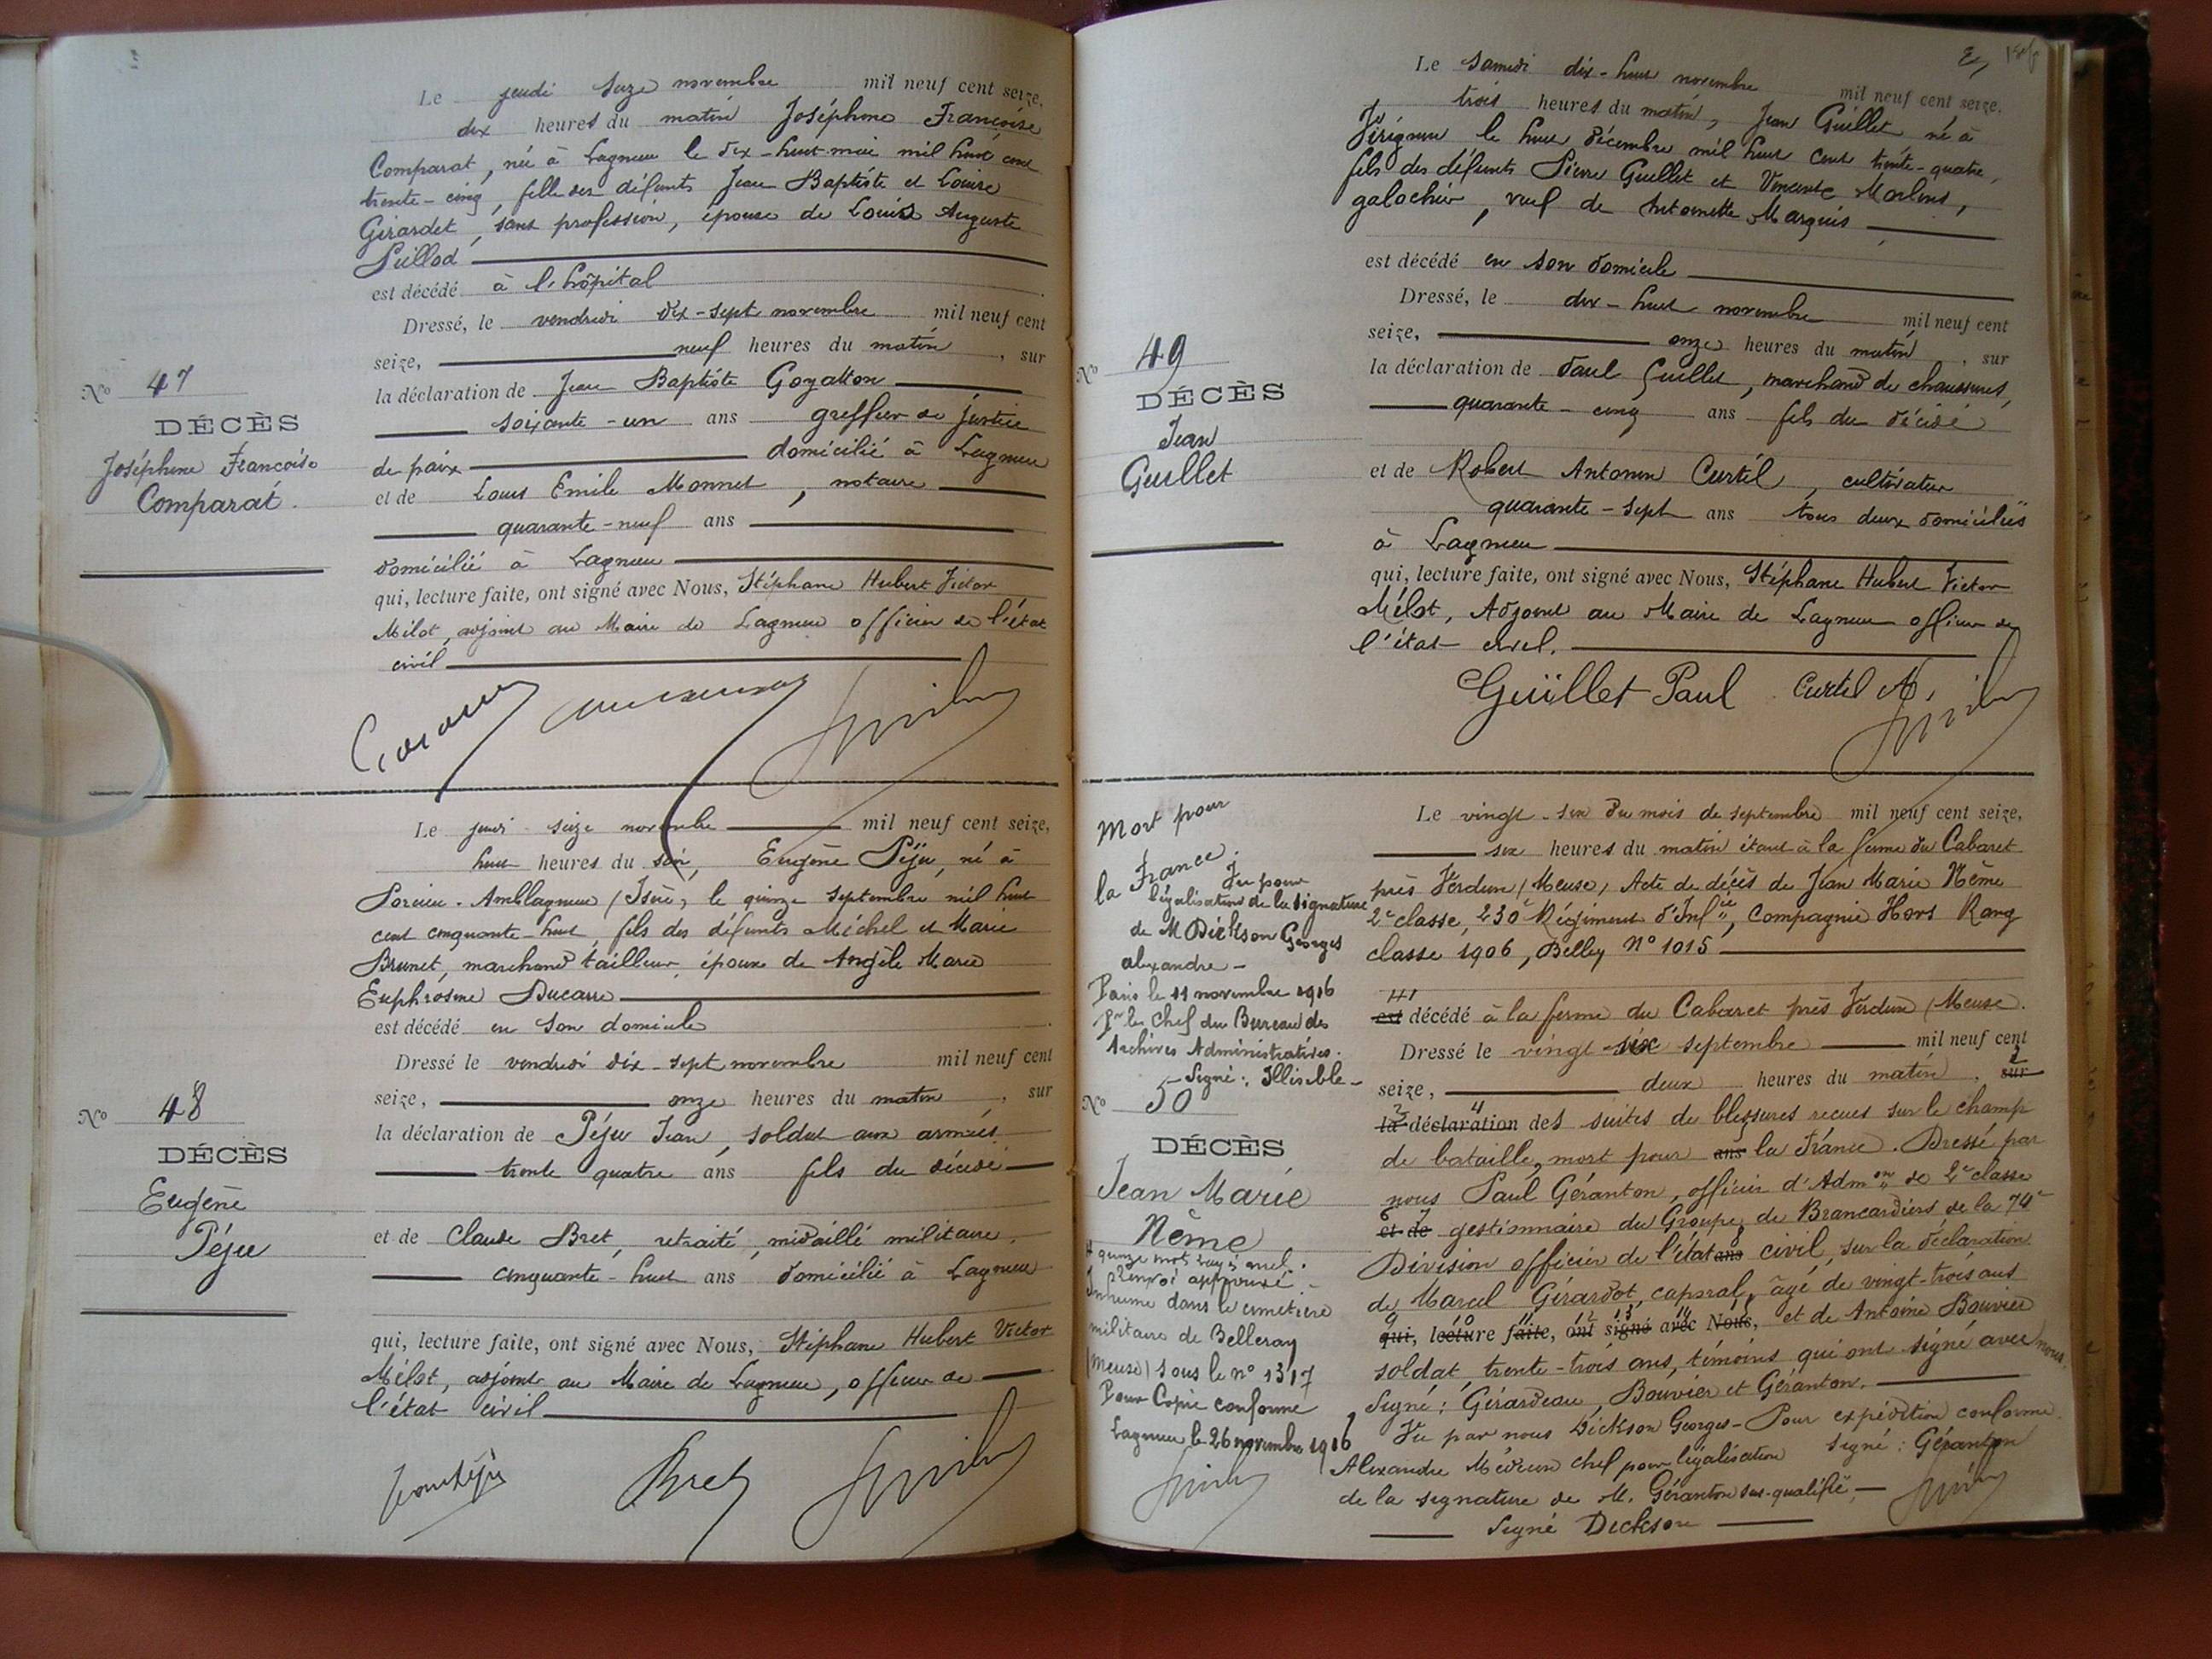 Le jeudi seize novembre mil neuf cent seize,
dix heures du matin Joséphine Françoise
Comparat, née à Lagnieu le dix-huit mai mil huit cent
trente-cinq, fille des défunts Jean Baptiste et Louise
Girardet, sans profession, épouse de Louis Auguste
Pillod
est décédé à l'hôpital
Dressé, le vendredi dix-sept novembre mil neuf cent
seize, neuf heures du matin, sur
la déclaration de Jean Baptiste
soixante-un ans greffier de justice
de paix domicilié à Lagnieu
et de Louis Emile Monnet, notaire
quarante-neuf ans
domicilié à Lagnieu
qui, lecture faite, ont signé avec Nous, Stéphane Hubert Victor
Milot, adjoint au Maire de Lagnieu officier de l'état
civil
No 47
DÉCÈS
Joséphine Françoise
Comparat.
Le jeudi seize novembre mil neuf cent seize,
huit heures du soir, Eugène Péju, né à
Porcieu-Amblagnieu (Isère), le quinze septembre mil huit
cent cinquante-huit, fils des défunts Michel et Marie
Brunet, marchand tailleur, époux de Angèle Marie
Euphrosine Ducarre
est décédé en son domicile
Dressé le vendredi dix-sept novembre mil neuf cent
seize, onze heures du matin, sur
la déclaration de Péju Jean, soldat aux armées
trente quatre ans fils du décédé
et de Claude Bret, retraité, médaillé militaire,
cinquante-huit ans domicilié à Lagnieu
qui, lecture faite, ont signé avec Nous, Stéphane Hubert Victor
Mélot, adjoint au Maire de Lagnieu, officier de
l'état civil
Bret
No 48
DÉCÈS
Eugène
Péju
Le samedi dix-huit novembre mil neuf cent seize.
trois heures du matin, Jean Guillet né à
Virignin le huit décembre mil huit cent trente-quatre,
fils des défunts Pierre Guillet et Vincente
galochier, veuf de Antoinette Marquis
est décédé en son domicile
Dressé, le dix-huit novembre mil neuf cent
seize, onze heures du matin, sur
la déclaration de Paul Guillet, marchand de chaussures,
quarante-cinq ans fils du décédé
et de Robert Antonin Curtil, cultivateur
quarante-sept ans tous deux domiciliés
à Lagnieu
qui, lecture faite, ont signé avec Nous, Stéphane Hubert Victor
Mélot, Adjoint au Maire de Lagnieu officier de
l'état civil.
Guillet Paul Curtil A.
No 49
DÉCÈS
Jean
Guillet
Le vingt-six du mois de septembre mil neuf cent seize,
six heures du matin étant à la ferme du Cabaret
près Verdun (Meuse) Acte de décès de Jean Marie Nême
2e classe, 230e Régiment d'Infie, Compagnie Hors Rang
classe 1906, Belley No 1015
est décédé à la ferme du Cabaret près Verdun (Meuse.
Dressé le vingt-six septembre mil neuf cent
seize, deux heures du matin, sur
la déclaration des suites de blessures reçues sur le champ
de bataille, mort pour ans la France. Dressé par
nous Paul Géranton, officier d'Admon de 2e classe
et de gestionnaire du Groupe de Brancardiers de la 74e
Division officier de l'état ans civil, sur la déclaration
de Marcel Girardot, caporal, âgé de vingt-trois ans
qui, lecture faite, ont signé avec Nous, et de Antoine Bouvier
soldat, trente-trois ans, témoins qui ont signé avec nous.
Signé: Girardeau, Bouvier et Géranton.
Vu par nous Dickson Georges - Pour expédition conforme
Alexandre Médecin chef pour légalisation signé: Géranton
de la signature de M. Géranton sus-qualifié,
Signé Dickson
Mort pour
la France.
Vu pour
légalisation de la signature
de M Dickson Georges
alexandre -
Paris le 11 novembre 1916
Pr le Chef du Bureau des
Archives Administratives.
Signé: Illisible -
No 50
DÉCÈS
Jean Marie
Nême
quinze mots rayés nuls.
Renvoi approuvé -
Inhumé dans le cimetière
militaire de Belleray
(Meuse) sous le no 1317
Pour Copie conforme
Lagnieu le 26 novembre 1916